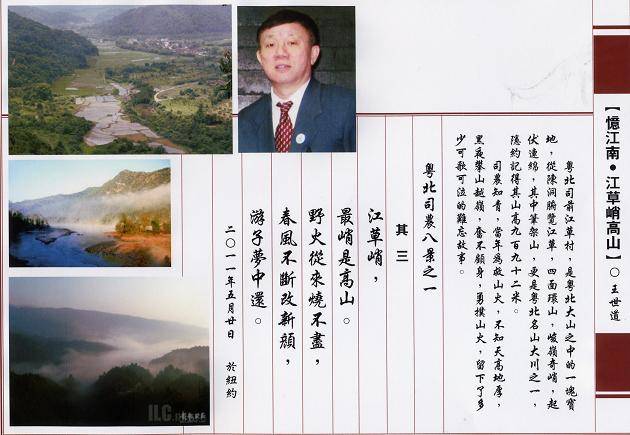 【憶江南•江草峭高山】○王世道
粵北司前江草村，是粵北大山之中的一塊寶
地，從陳洞覽江草，四面環山，峻嶺奇峭，起
伏連綿，其中筆架山，更是粵北名山大川之一，
隱約記得其山高九百九十二米。
司農知青，當年為救山火，不知天高地厚，
黑夜攀山越嶺，奮不顧身，勇撲山火，留下了多
少可歌可泣的難忘故事。
粵北司農八景之一
其三
江草峭，
最峭是高山。
野火從來燒不盡，
春風不斷改新顏，
游子夢中還。
二〇一一年五月廿日 於紐約
ILC